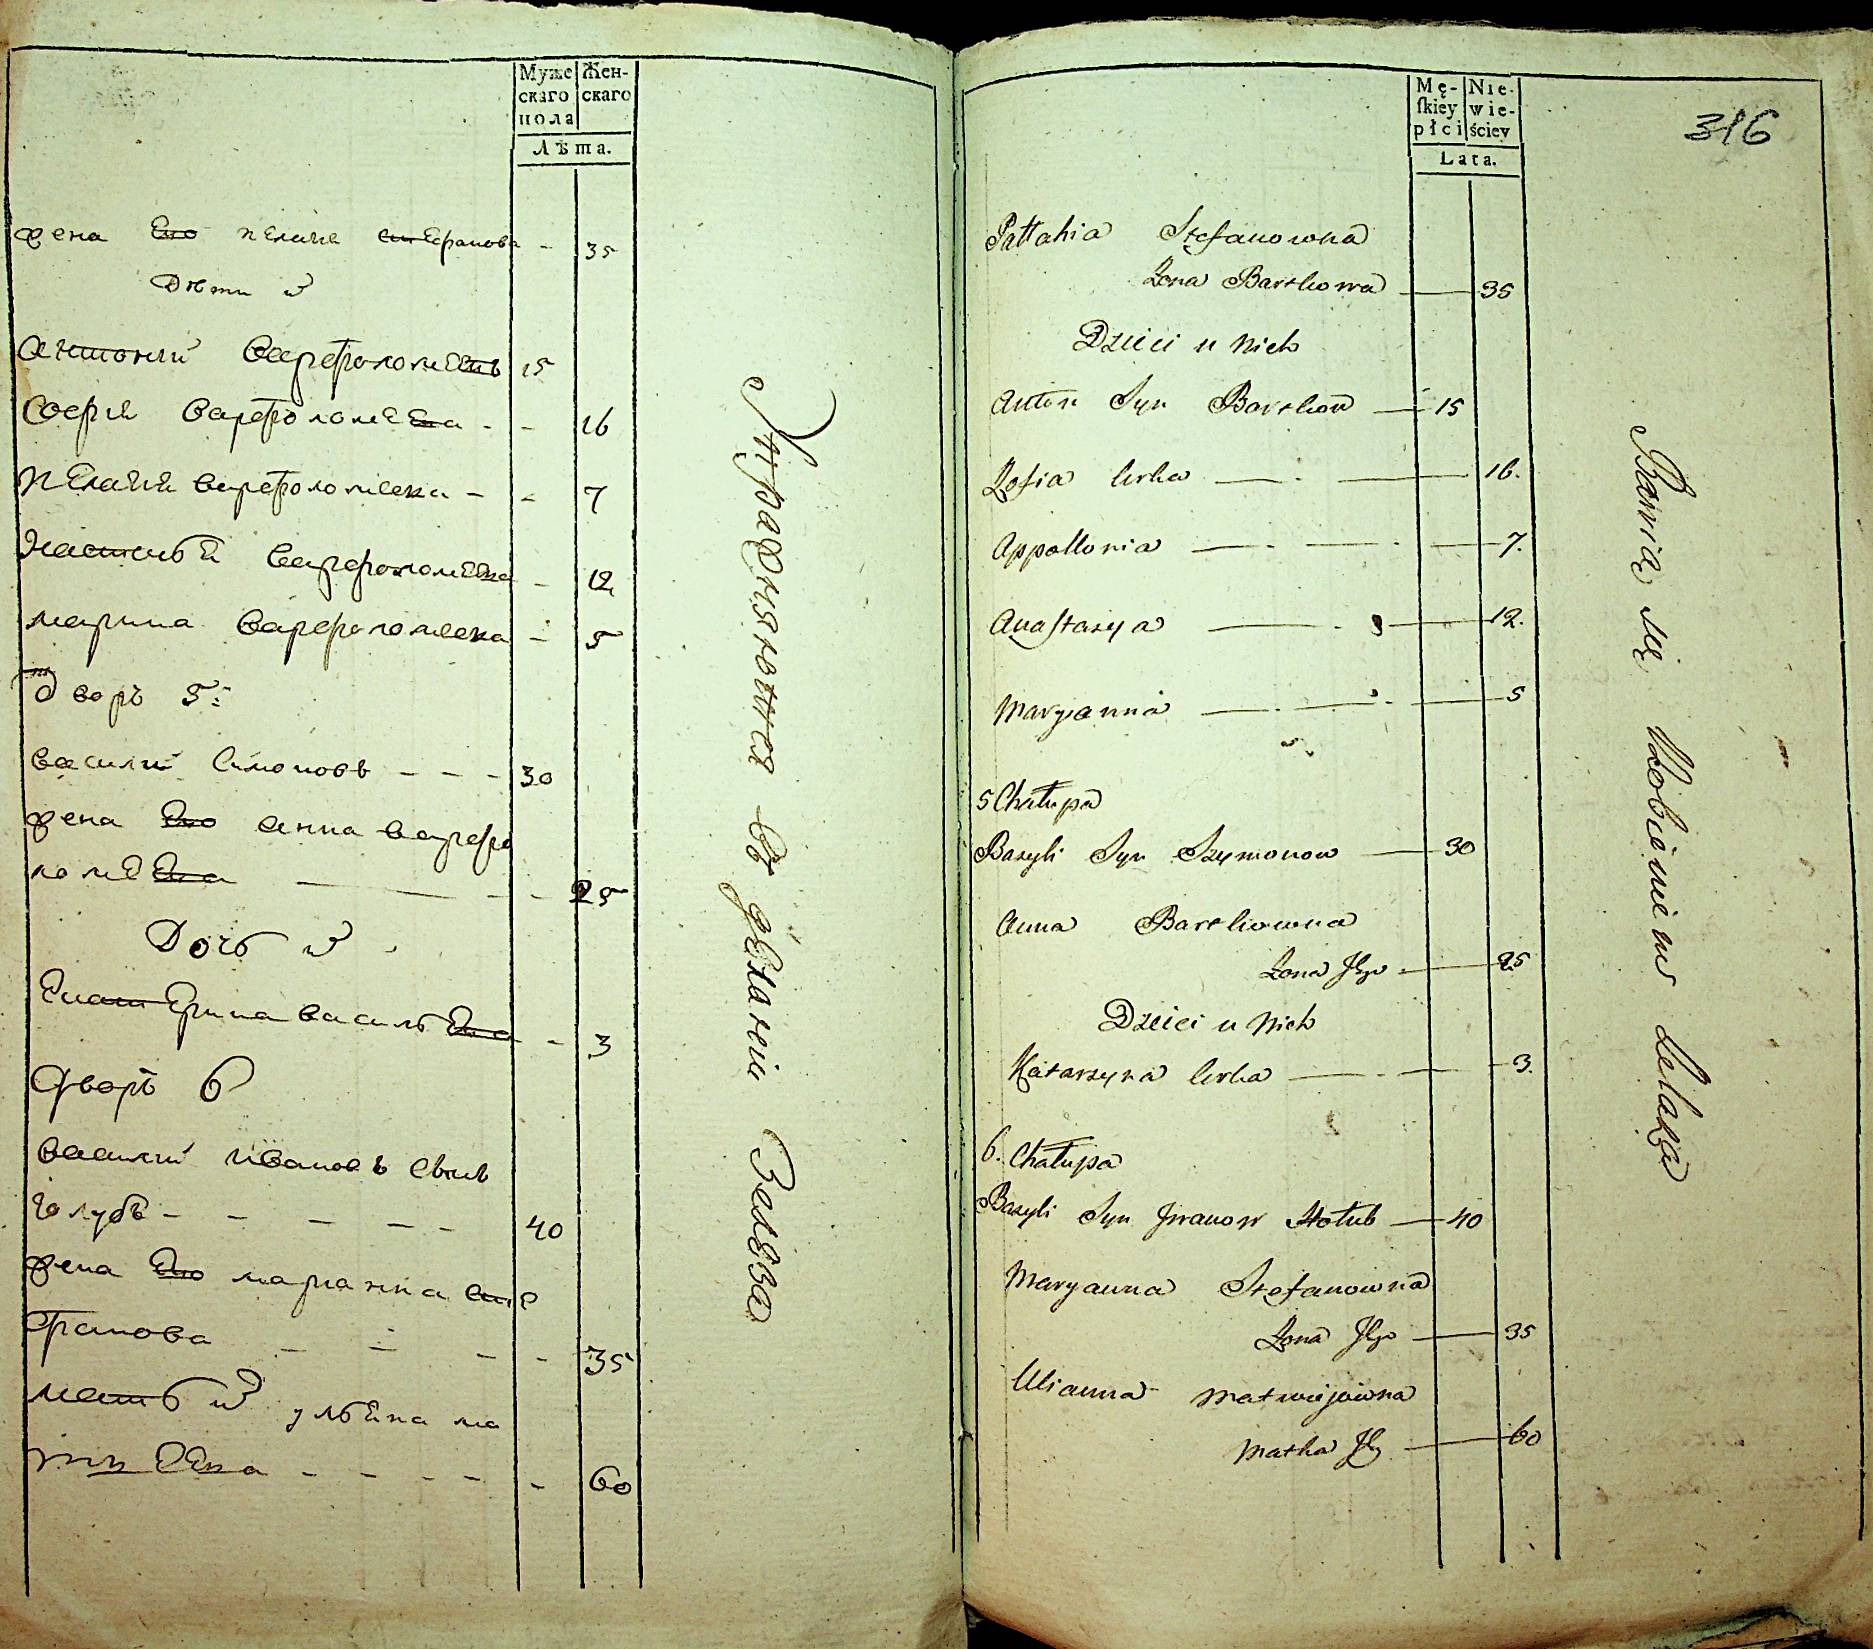 Муже
скаго
пола
Жен-
скаго
Лѣта.
жена Его пелагия стефанова - 35
Дѣти и
антоний варфоломеевъ 15
софия варфоломеева - - 16
пелагия варфоломеева - - 7
настасья варфоломеева - 12
марина варфоломеева - 5
дворъ 5:
василий Симоновъ - - - 30
жена Его анна варфо
ломеева - - 25
Дочь и
Екатерина васильева - - 3
дворъ 6
василий ивановъ сынъ
голубъ - - - - - 40
жена Его марианна сте
фанова - - - - 35
мать и ульяна ма
твеева - - - - - 60
Упражняются въ деланіи Зелеза
Mę-
skiey
płci
Nie-
wie-
ściey
Lata.
316
Pałłahia Stefanowna
Żona Bartkowa 35
Dzieci u Nich
Anton Syn Bartkow 15
Zofia Corka 16.
Appollonia 7.
Anastazya 12.
Maryanna 5
5 Chałupa
Bazyli Syn Szymonow 30
Anna Bartkowna
Żona Jego 25
Dzieci u Nich
Katarzyna Corka 3.
6. Chałupa
Bazyli Syn Jwanow Hołub 40
Maryanna Stefanowna
Żona Jego 35
Ulianna Matwiejowna
Matka Jego 60
Bawią się Robieniem Żelaza